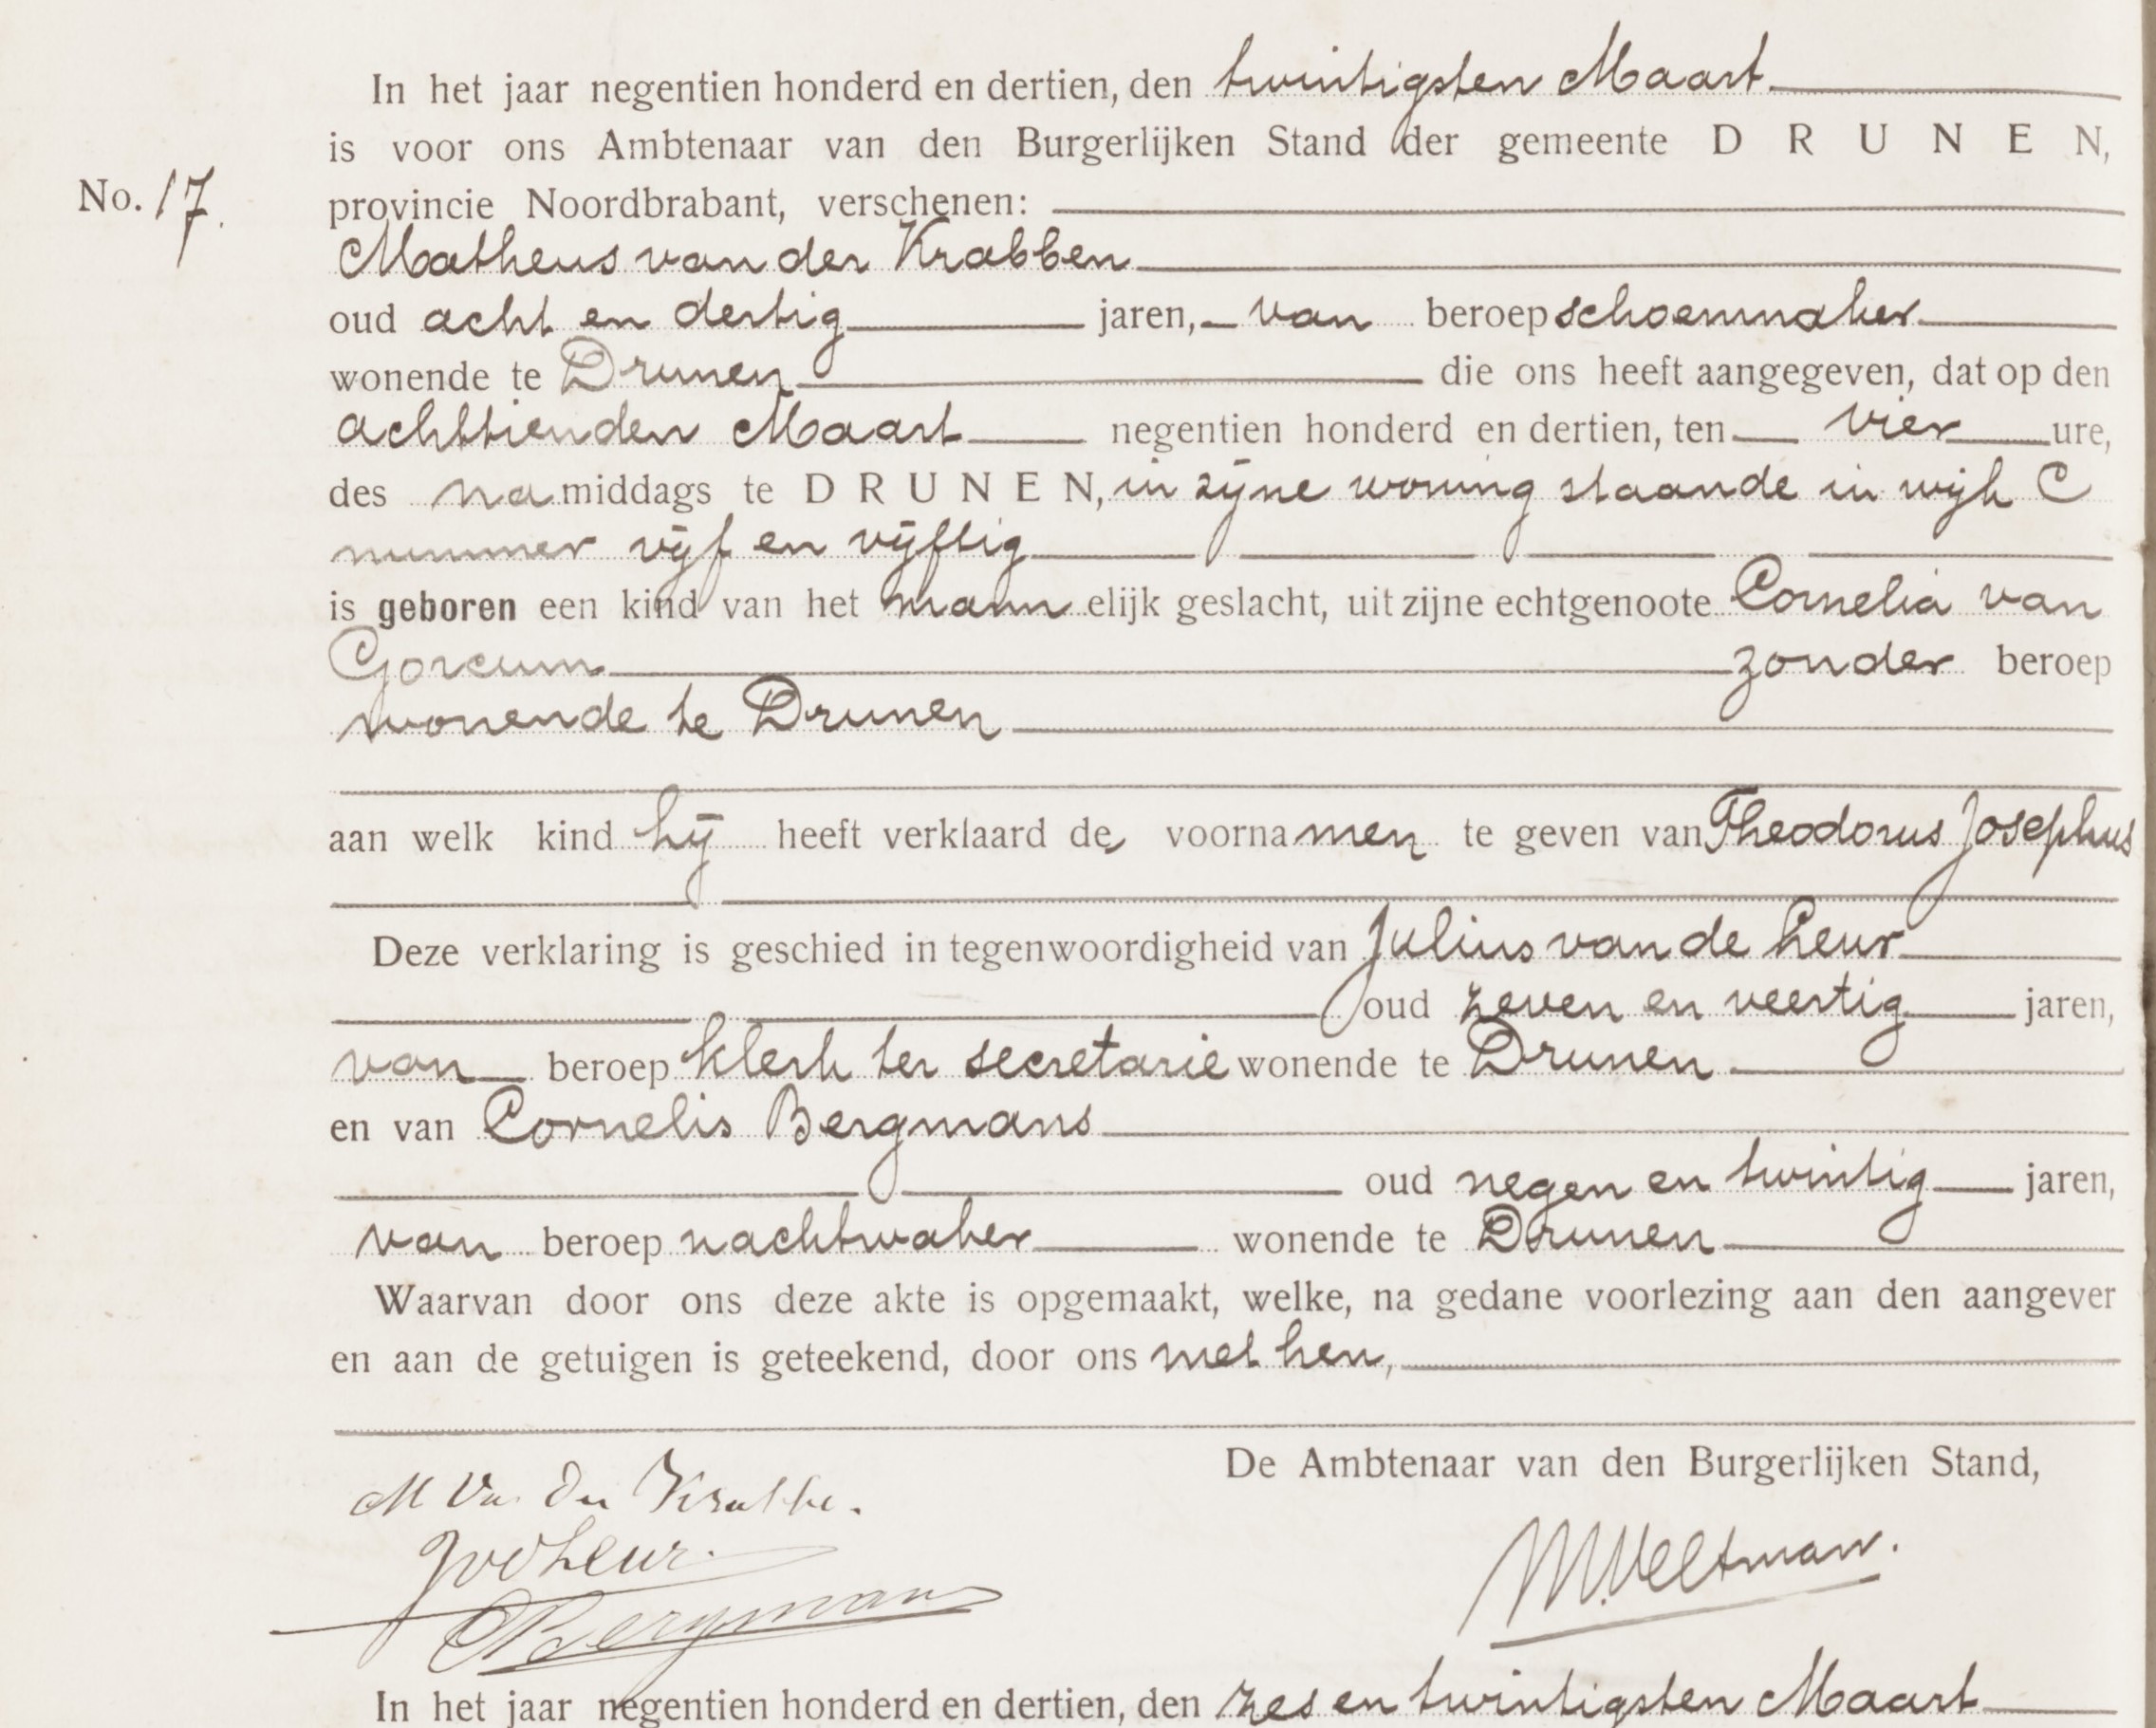 In het jaar negentien honderd en dertien, den twintigsten Maart
is voor ons Ambtenaar van den Burgerlijken Stand der gemeente DRUNEN,
No. 17. provincie Noordbrabant, verschenen:
Matheus van der Krabben
oud acht en dertig jaren, van beroep schoenmaker
wonende te Drunen die ons heeft aangegeven, dat op den
achttienden Maart negentien honderd en dertien, ten vier ure,
des namiddags te DRUNEN, in zijne woning staande in wijk C
nummer vijf en vijftig
is geboren een kind van het mannelijk geslacht, uit zijne echtgenoote Cornelia van
Gorcum zonder beroep
wonende te Drunen
aan welk kind hij heeft verklaard de voornamen te geven van Theodorus Josephus
Deze verklaring is geschied in tegenwoordigheid van Julius van de Leur
oud zeven en veertig jaren,
van beroep klerk ter secretarie wonende te Drunen
en van Cornelis Bergmans
oud negen en twintig jaren,
van beroep nachtwaker wonende te Drunen
Waarvan door ons deze akte is opgemaakt, welke, na gedane voorlezing aan den aangever
en aan de getuigen is geteekend, door ons met hen,
De Ambtenaar van den Burgerlijken Stand,
M Van Der Krabbe.
JvdLeur.
M. Veltman.
CBergmans
In het jaar negentien honderd en dertien, den zes en twintigsten Maart